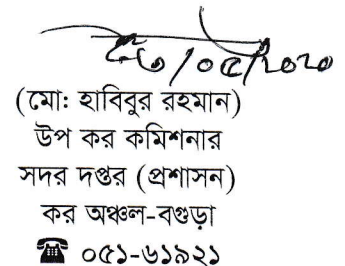 (মো: হাবিবুর রহমান)
উপ কর কমিশনার
সদর দপ্তর (প্রশাসন)
কর অঞ্চল-বগুড়া
☎ ০৫১-৬১৯২১